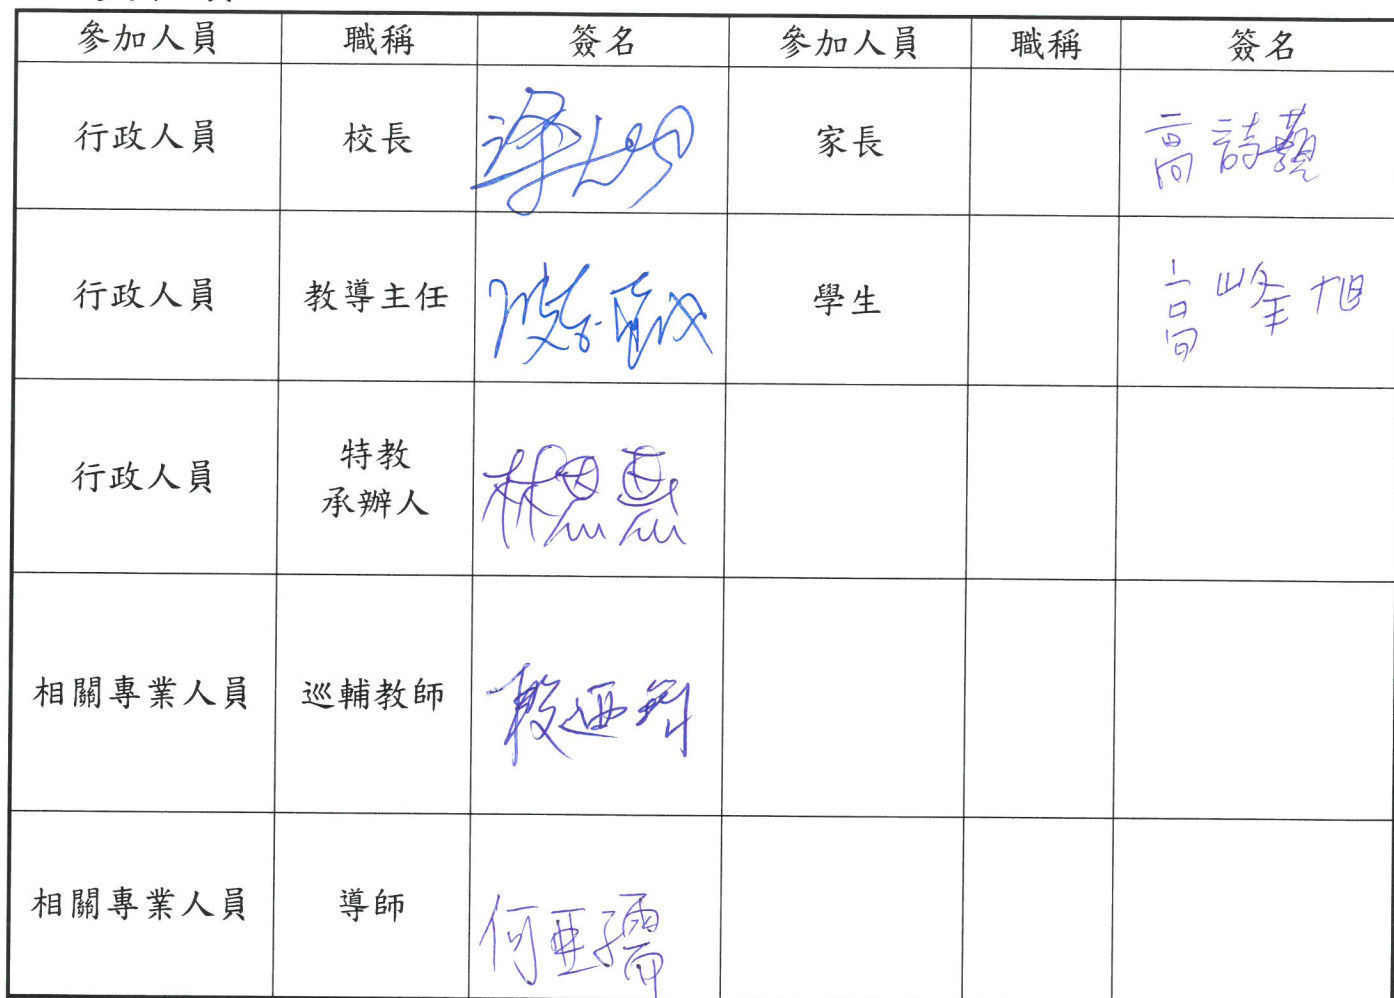 參加人員 職稱 簽名 參加人員 職稱 簽名
行政人員 校長 家長 高詩藝
行政人員 教導主任 學生 高峰旭
行政人員 特教
承辦人 林恩惠
相關專業人員 巡輔教師
相關專業人員 導師 何亞孺